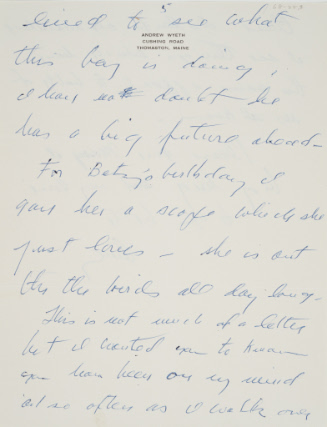 5
lined to see what
ANDREW WYETH
CUSHING ROAD
THOMASTON, MAINE
this boy is doing,
I have no doubt he
has a big future ahead—
For Betsy's birthday I
gave her a scope which she
just loves — she is out
the birds all day long.
This is not much of a letter
but I wanted you to know
you have been on my mind
so often as I walk over